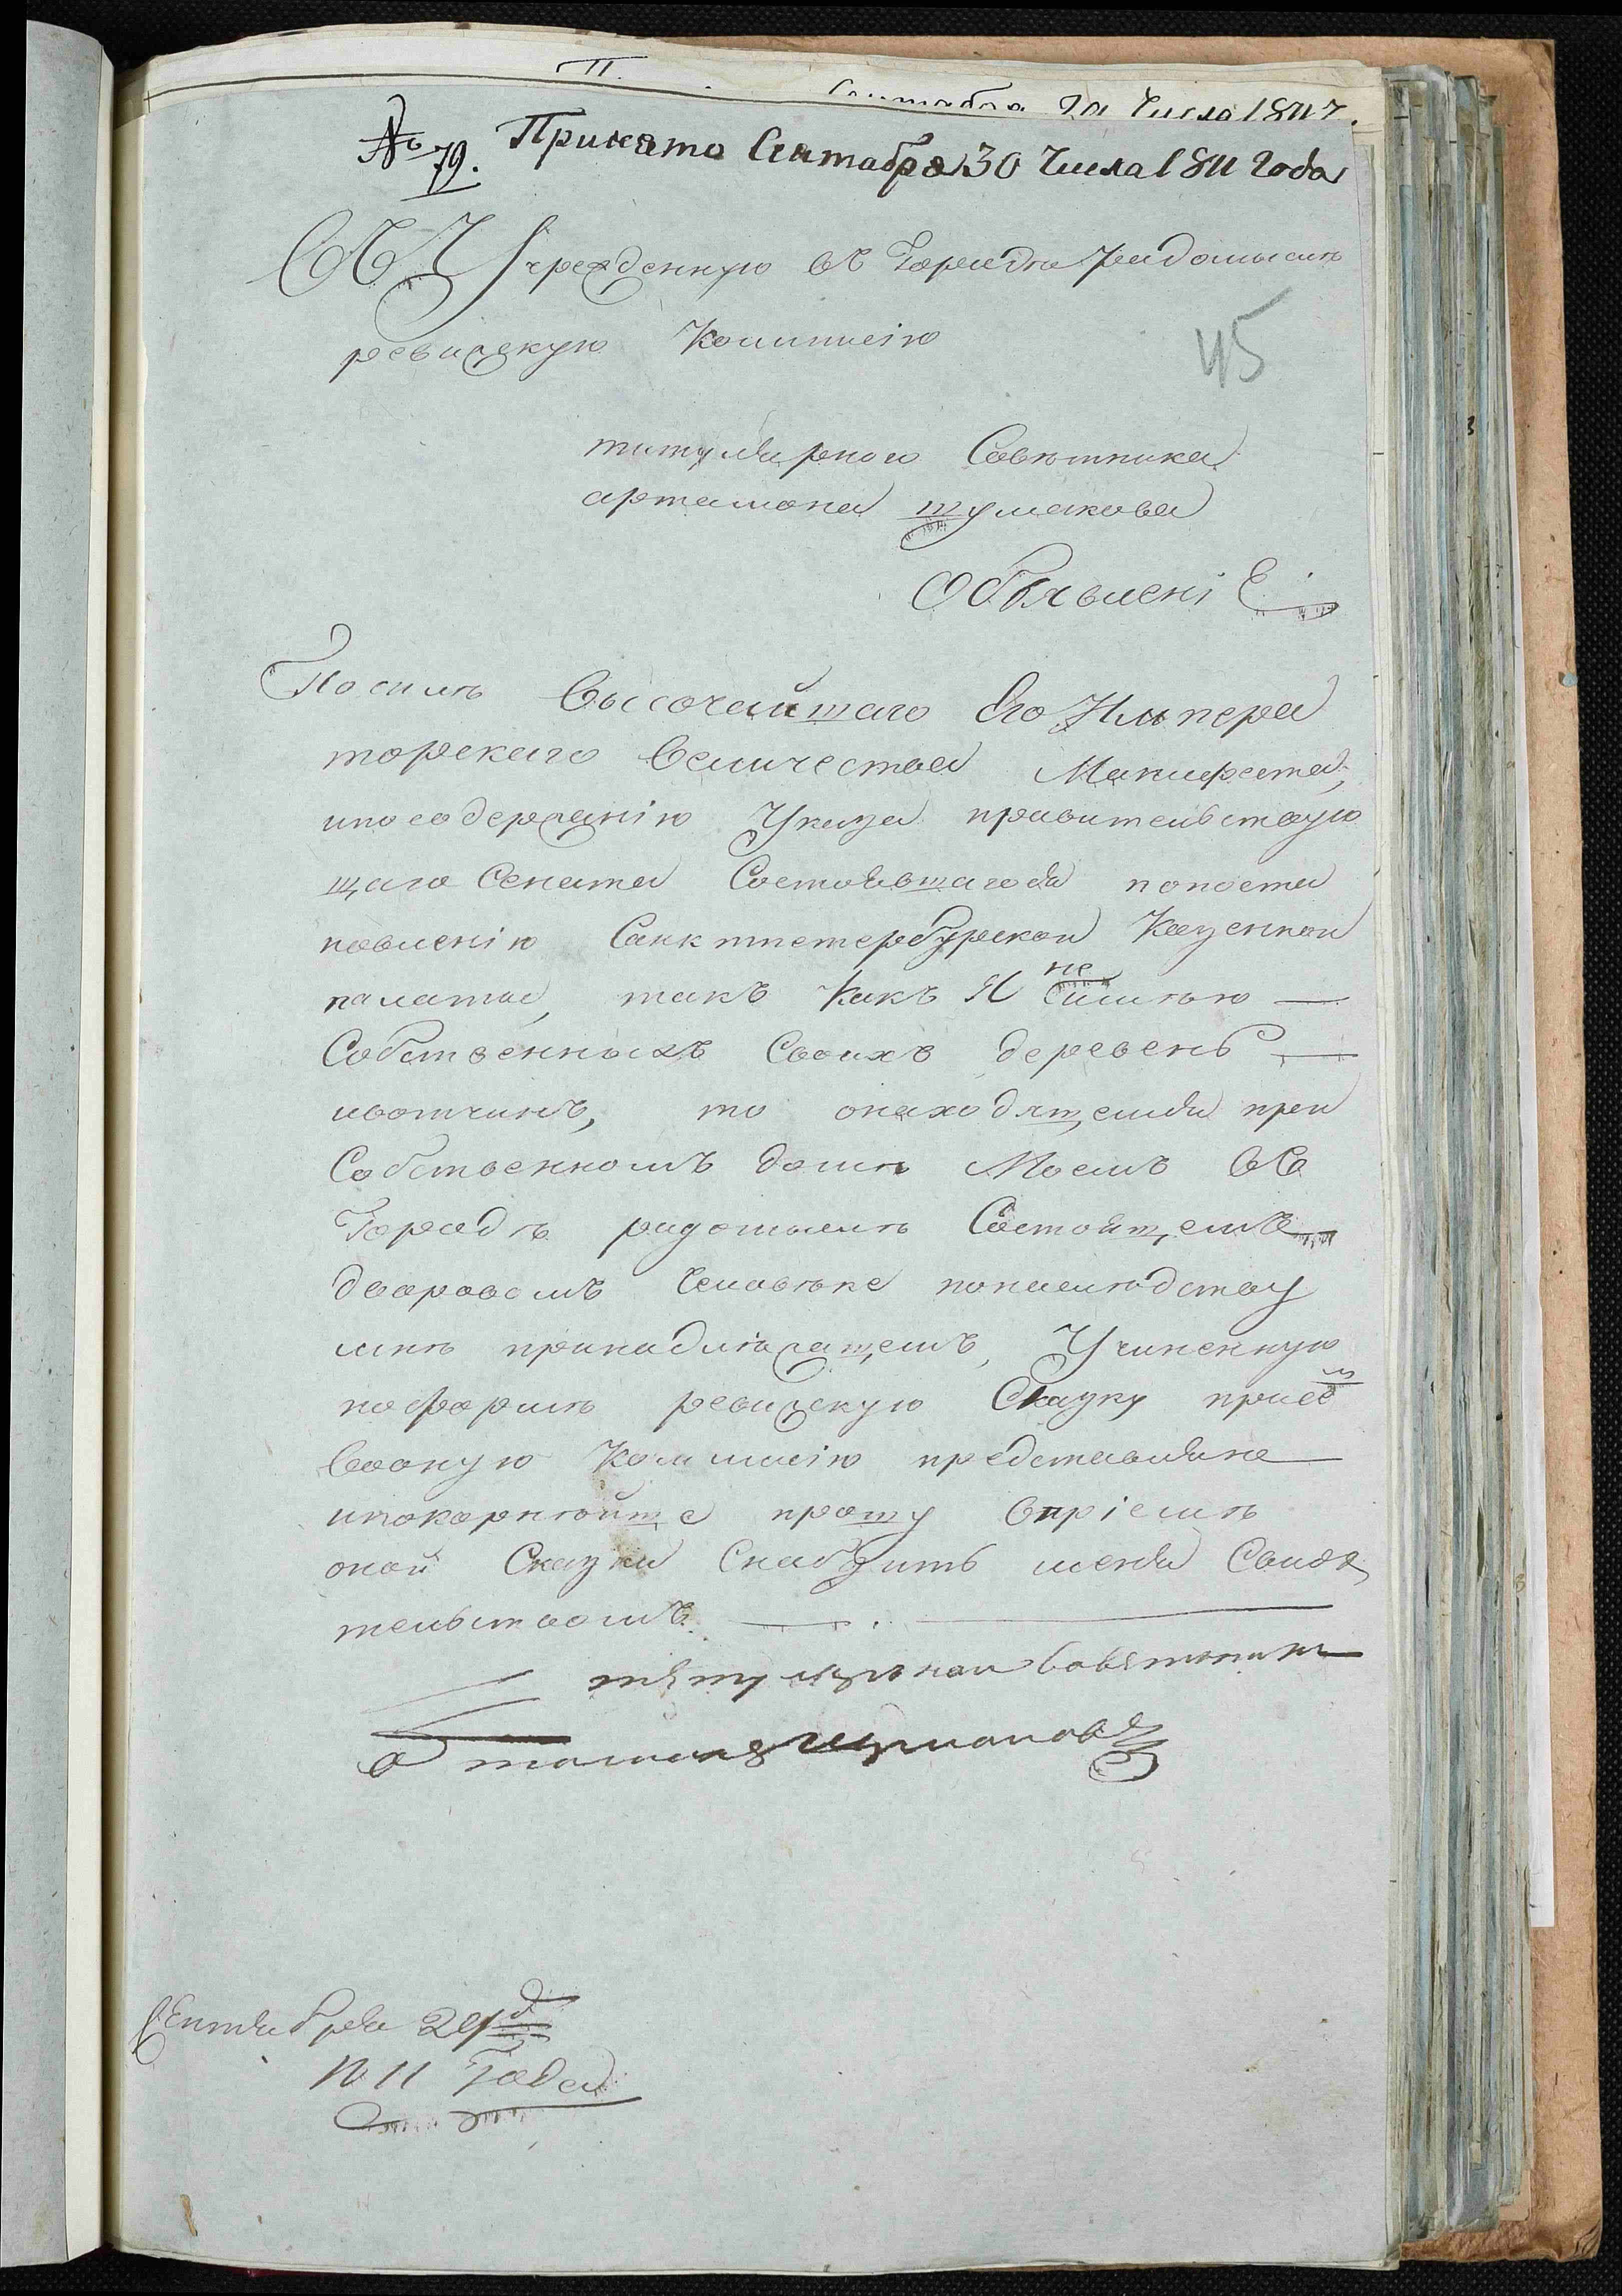 Сентября 30 Числа 1811
№ 79. Принято Сентября 30 Числа 1811 Года
Въ Учрежденную въ Городѣ Радомыслѣ
ревизскую Коммисію
45
титулярного Совѣтника
артамона шумакова
Объявленіе
По силѣ Высочайшаго Его Импера
торскаго Величества Манифеста,
ипосодержанію Указа правительствую
щаго Сената Состоявшагося попоста
новленію Санктпетербурской Казенной
палаты, такъ какъ Я не имѣю
Собственныхъ Своихъ деревень
ивотчинъ, то онаходящемся при
Собственномъ домѣ Моемъ въ
Городѣ радомыслѣ Состоящемъ
дворовомъ Человѣке понаслѣдству
мнѣ принадлѣжащемъ, Учиненную
поформѣ ревизскую Сказку при семъ
Вооную Коммисію представляю
ипокорнѣйше прошу впріемѣ
оной Сказки Снабдить меня Свидѣ
тельствомъ.
титулярной Советникъ
Сентября 29д
1811 Года